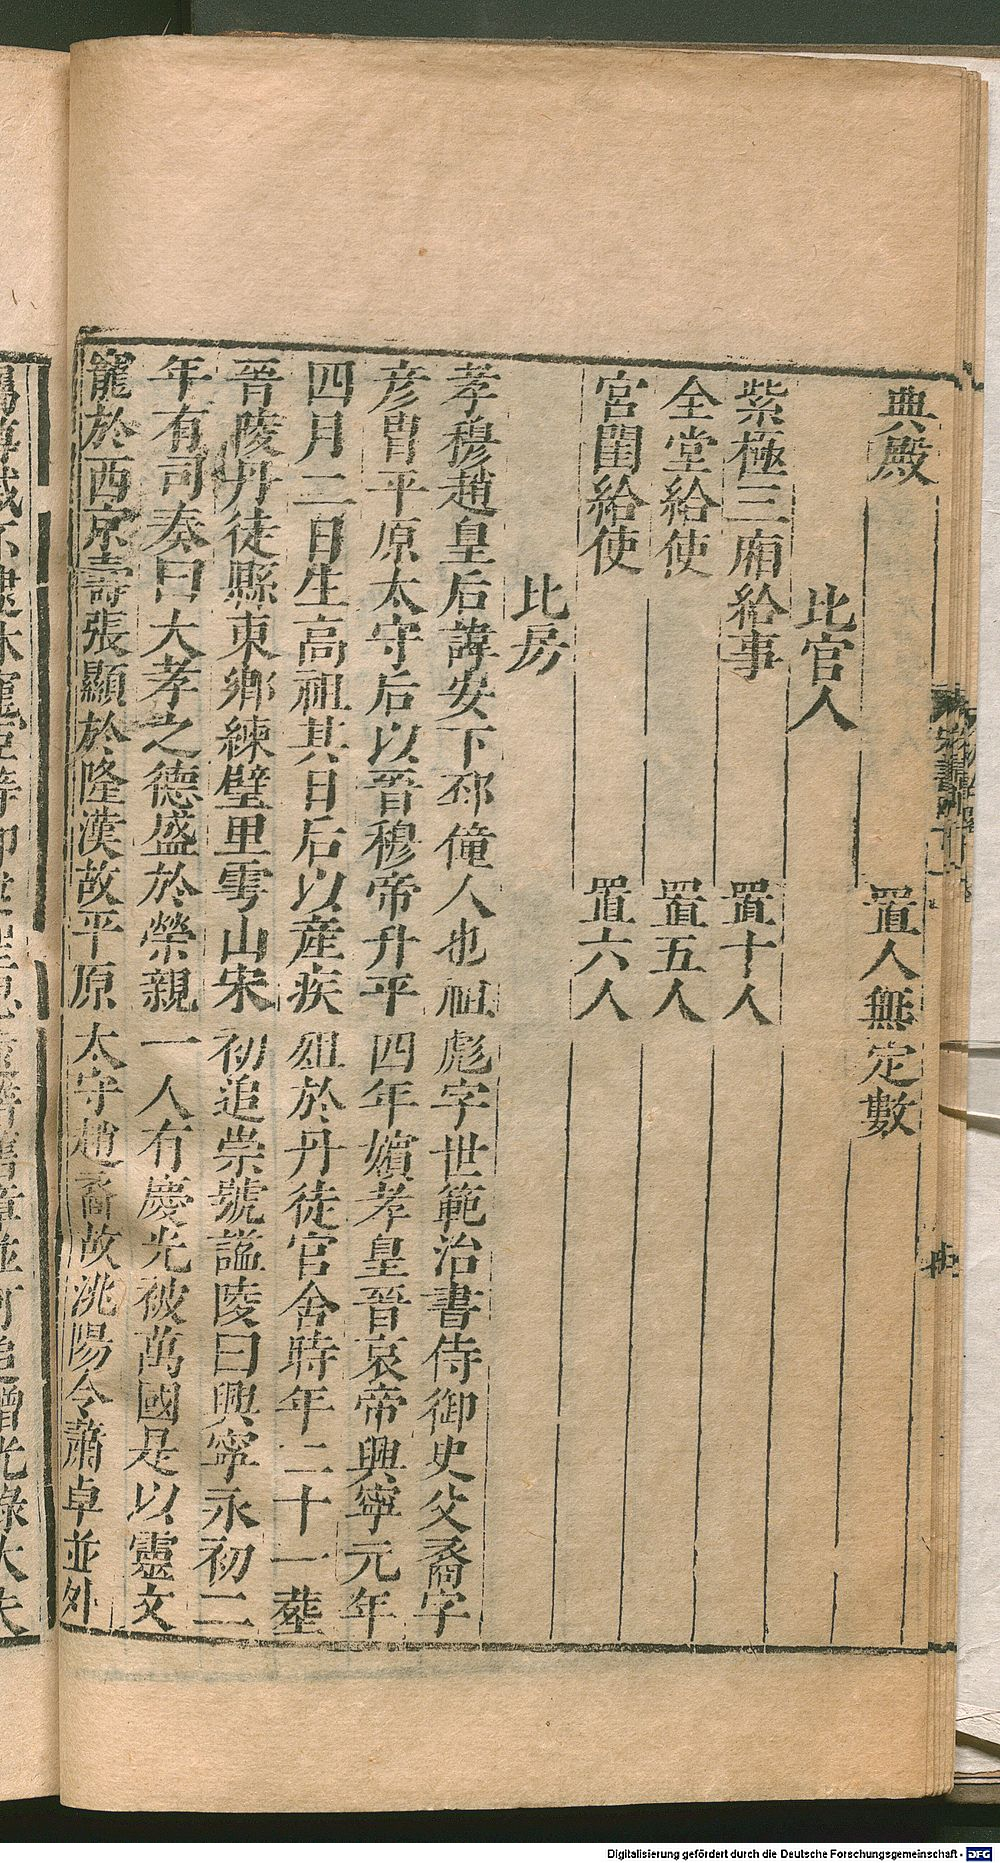 典殿 置人無定數
比官人
紫極三廂給事 置十人
全堂給使 置五人
宮閨給使 置六人
比房
孝穆趙皇后諱安下邳僮人也祖彪字世範治書侍御史父裔字
彦胄平原太守后以晉穆帝升平四年嬪孝皇晉哀帝興寧元年
四月二日生高祖其日后以產疾殂於丹徒官舍時年二十一葬
晉陵丹徒縣東鄉練璧里雩山宋初追崇號謚陵曰興寧永初二
年有司奏曰大孝之德盛於榮親一人有慶光被萬國是以靈文
寵於西京壽張顯於隆漢故平原太守趙裔故洮陽令蕭卓並外
Digitalisierung gefördert durch die Deutsche Forschungsgemeinschaft - DFG